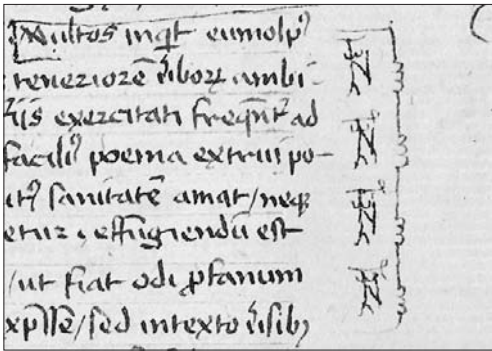 Multos inqͥt eumolpꝰ
teneriorē ūborꝝ ambi-
riis exercitati freqn̄t᷑ ad
faciliꝰ poema extrui po-
itꝰ sanitatē amat/neqꝫ
etur ; effugiendū est
/ut fiat odi ꝓfanum
xp̄sse/sed intexto ūsibꝫ